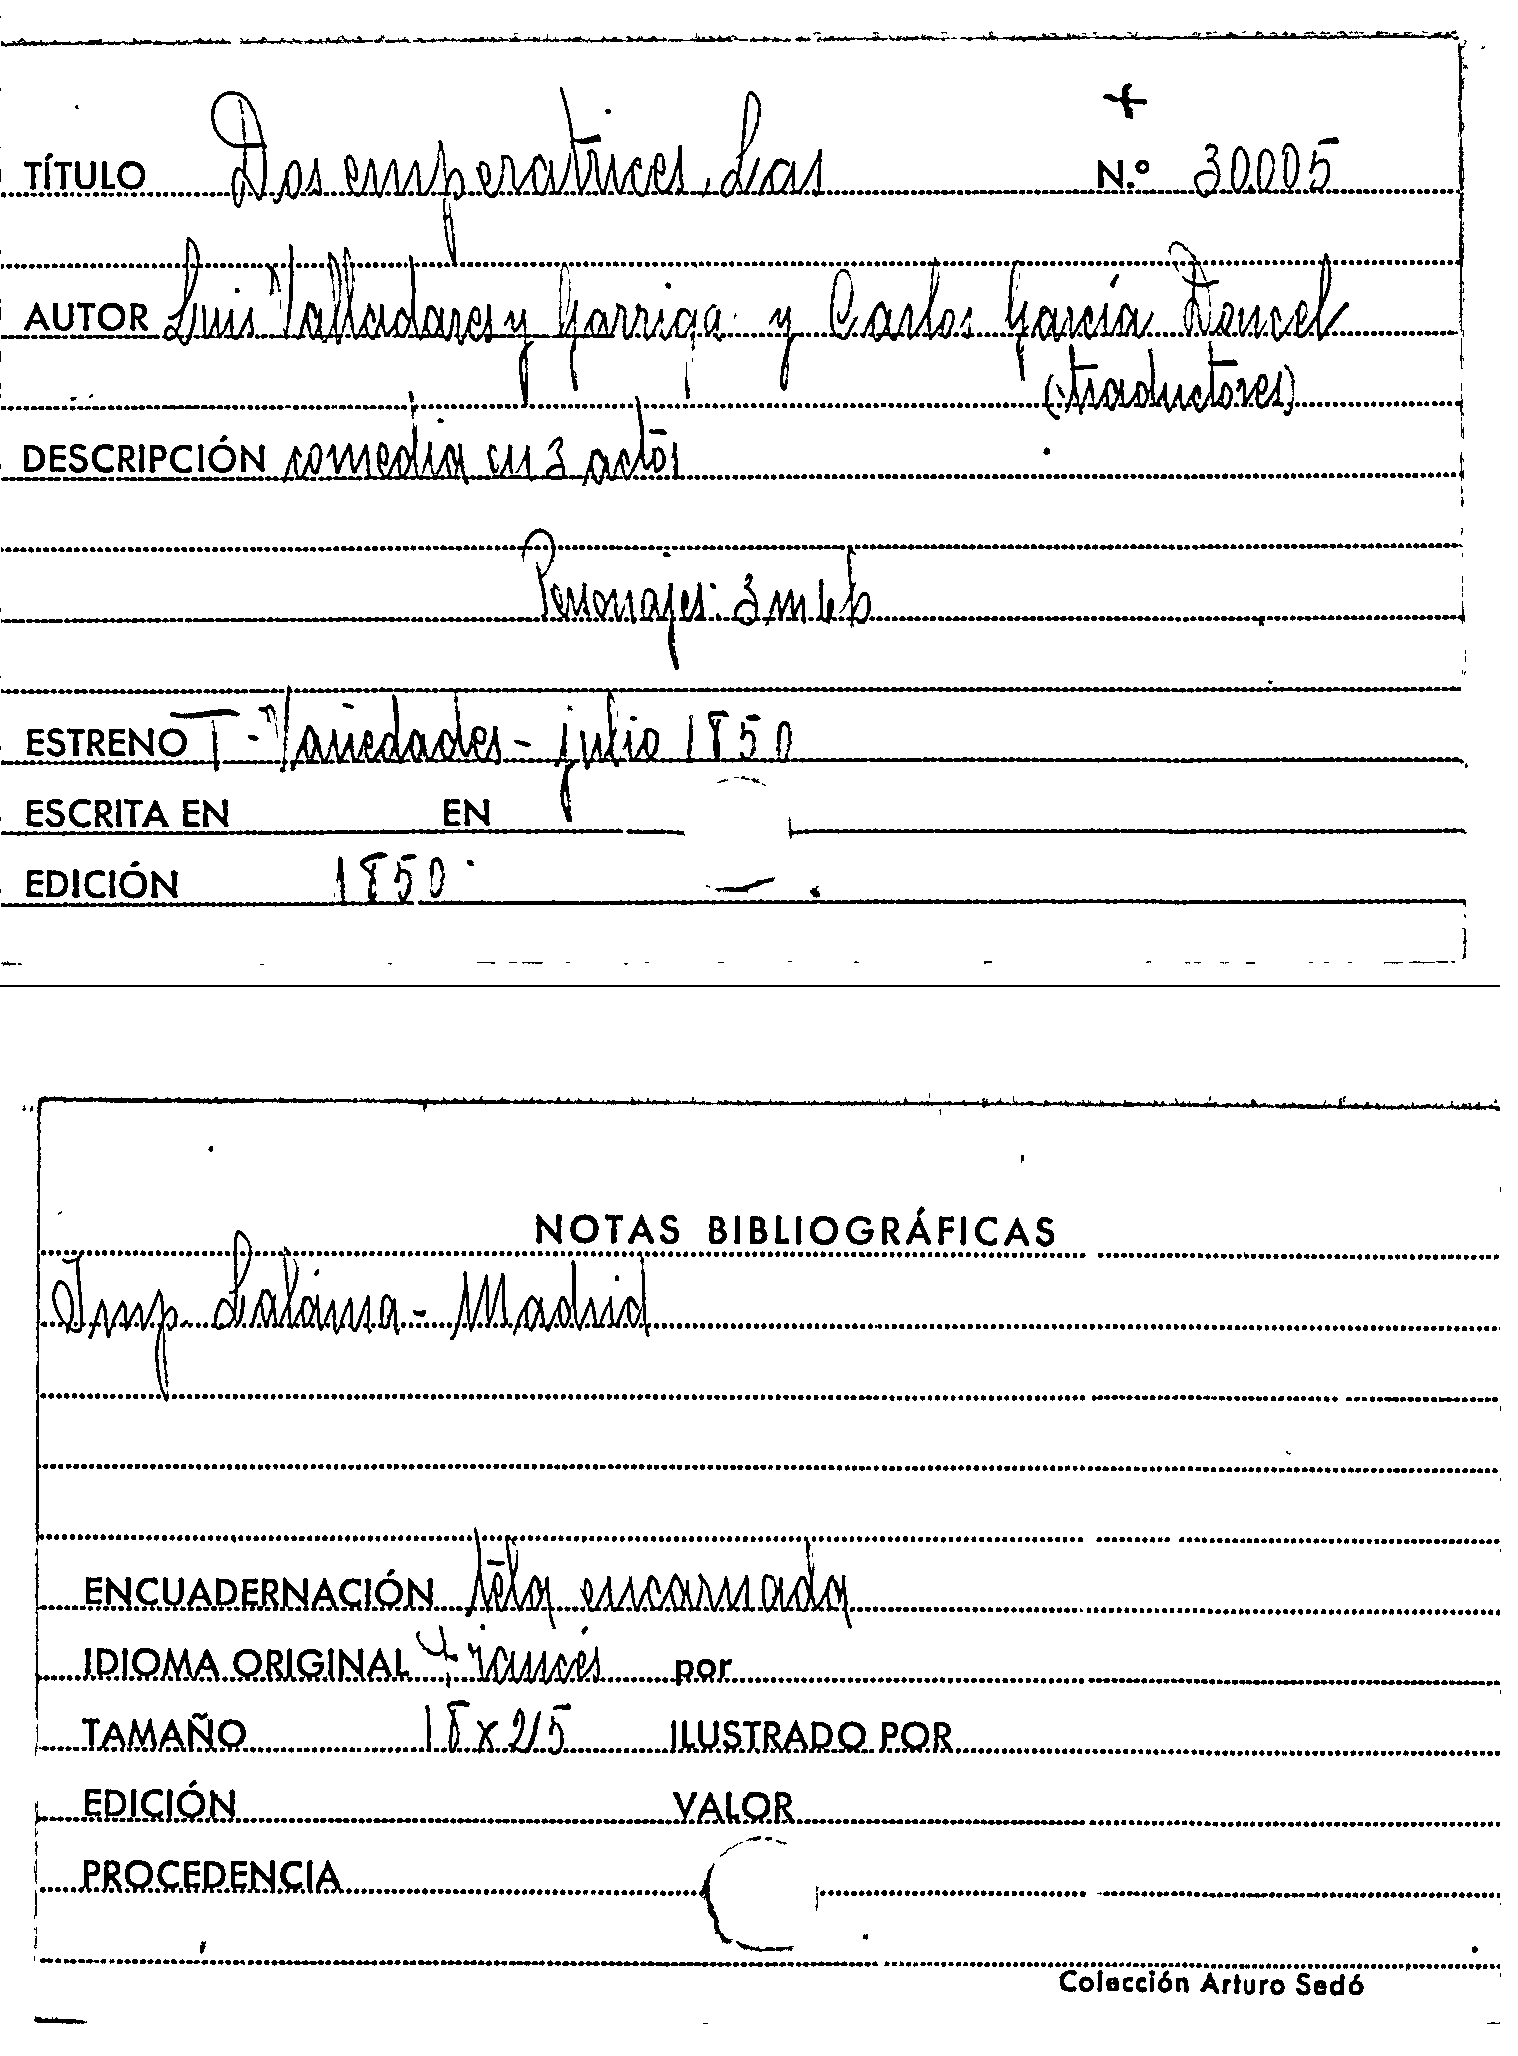 TÍTULO Dos emperatrices, Las N.º 30.005
AUTOR Luis Valladares y Garriga y Carlos García Doncel
(traductores)
DESCRIPCIÓN comedia en 3 actos
Personajes: 3 m 6 h
ESTRENO T. Variedades - julio 1850
ESCRITA EN EN
EDICIÓN 1850
NOTAS BIBLIOGRÁFICAS
Imp. Lalama - Madrid
ENCUADERNACIÓN tela encarnada
IDIOMA ORIGINAL francés por
TAMAÑO 18 x 215 ILUSTRADO POR
EDICIÓN VALOR
PROCEDENCIA
Colección Arturo Sedó